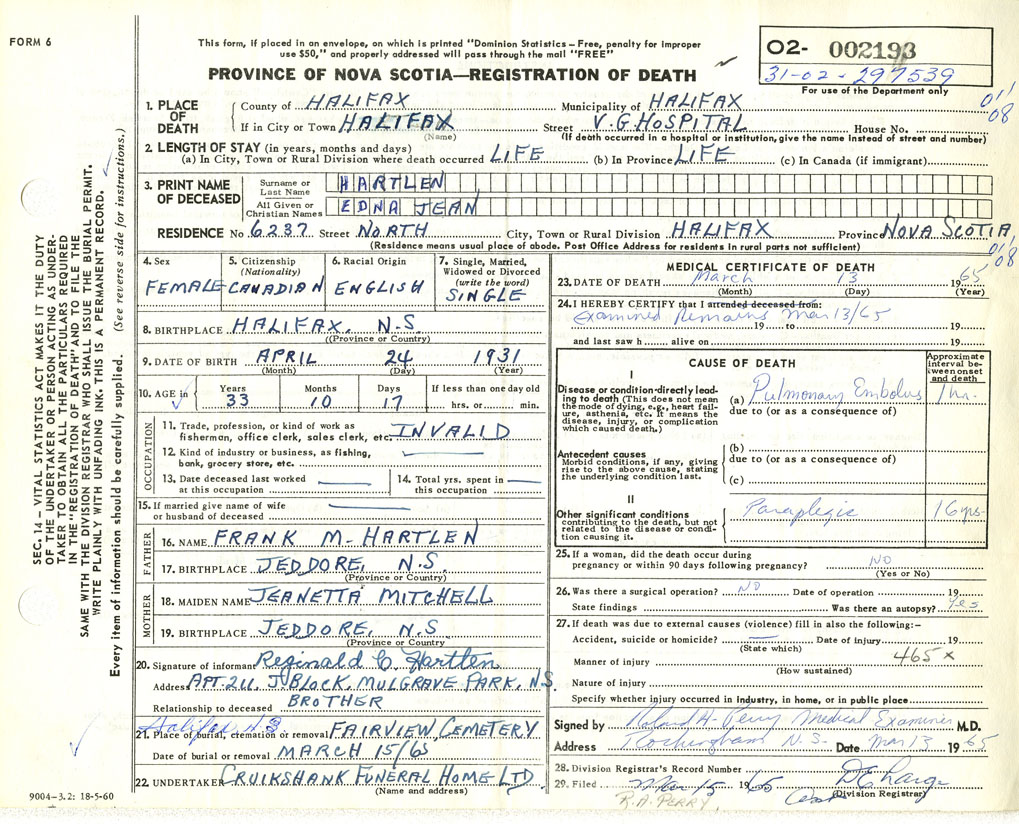 FORM 6
This form, if placed in an envelope, on which is printed "Dominion Statistics – Free, penalty for improper
use $50," and properly addressed will pass through the mail "FREE"
PROVINCE OF NOVA SCOTIA—REGISTRATION OF DEATH
02- 002193
31-02-297539
For use of the Department only
011
08
SEC. 14 – VITAL STATISTICS ACT MAKES IT THE DUTY
OF THE UNDERTAKER OR PERSON ACTING AS UNDER-
TAKER TO OBTAIN ALL THE PARTICULARS REQUIRED
IN THE "REGISTRATION OF DEATH" AND TO FILE THE
SAME WITH THE DIVISION REGISTRAR WHO SHALL ISSUE THE BURIAL PERMIT.
WRITE PLAINLY WITH UNFADING INK—THIS IS A PERMANENT RECORD.
Every item of information should be carefully supplied. (See reverse side for instructions.)
1. PLACE OF DEATH
County of HALIFAX Municipality of HALIFAX
If in City or Town HALIFAX Street V.G HOSPITAL House No.
(Name) (If death occurred in a hospital or institution, give the name instead of street and number)
2. LENGTH OF STAY (in years, months and days)
(a) In City, Town or Rural Division where death occurred LIFE (b) In Province LIFE (c) In Canada (if immigrant)
3. PRINT NAME OF DECEASED
Surname or Last Name HARTLEN
All Given or Christian Names EDNA JEAN
RESIDENCE No 6237 Street NORTH City, Town or Rural Division HALIFAX Province NOVA SCOTIA,
(Residence means usual place of abode. Post Office Address for residents in rural parts not sufficient)
011
08
4. Sex
FEMALE
5. Citizenship
(Nationality)
CANADIAN
6. Racial Origin
ENGLISH
7. Single, Married,
Widowed or Divorced
(write the word)
SINGLE
8. BIRTHPLACE HALIFAX, N.S.
((Province or Country)
9. DATE OF BIRTH APRIL 24 1931
(Month) (Day) (Year)
10. AGE in Years Months Days If less than one day old
33 10 17 hrs. or min.
OCCUPATION
11. Trade, profession, or kind of work as
fisherman, office clerk, sales clerk, etc. INVALID
12. Kind of industry or business, as fishing,
bank, grocery store, etc.
13. Date deceased last worked
at this occupation
14. Total yrs. spent in
this occupation
15. If married give name of wife
or husband of deceased
FATHER
16. NAME FRANK M. HARTLEN
17. BIRTHPLACE JEDDORE, N.S.
(Province or Country)
MOTHER
18. MAIDEN NAME JEANETTA MITCHELL
19. BIRTHPLACE JEDDORE, N.S
(Province or Country)
20. Signature of informant Reginald C. Hartlen
Address APT. 211, J BLOCK, MULGRAVE PARK, N.S.
Relationship to deceased BROTHER
Halifax N.S.
21. Place of burial, cremation or removal FAIRVIEW CEMETERY
Date of burial or removal MARCH 15/65
22. UNDERTAKER CRUIKSHANK FUNERAL HOME LTD.
(Name and address)
9004-3.2: 18-5-60
MEDICAL CERTIFICATE OF DEATH
23. DATE OF DEATH March 13 1965
(Month) (Day) (Year)
24. I HEREBY CERTIFY that I attended deceased from:
Examined Remains Mar 13/65
19 to 19
and last saw h alive on 19
CAUSE OF DEATH
Approximate
interval be-
tween onset
and death
I
Disease or condition directly lead-
ing to death (This does not mean
the mode of dying, e.g., heart fail-
ure, asthenia, etc. It means the
disease, injury, or complication
which caused death.)
(a) Pulmonary Embolus 1 hr.
due to (or as a consequence of)
Antecedent causes
Morbid conditions, if any, giving
rise to the above cause, stating
the underlying condition last.
(b)
due to (or as a consequence of)
(c)
II
Other significant conditions
contributing to the death, but not
related to the disease or condi-
tion causing it.
Paraplegic 16 yrs.
25. If a woman, did the death occur during
pregnancy or within 90 days following pregnancy? NO
(Yes or No)
26. Was there a surgical operation? NO Date of operation 19
State findings Was there an autopsy? Yes
27. If death was due to external causes (violence) fill in also the following:–
Accident, suicide or homicide? Date of injury 19
(State which)
Manner of injury 465 x
(How sustained)
Nature of injury
Specify whether injury occurred in industry, in home, or in public place
Signed by Roland H. Perry Medical Examiner M.D.
Address Rockingham N.S. Date Mar 13 1965
28. Division Registrar's Record Number
29. Filed Mar 15 1965
(Division Registrar)
R.A. PERRY